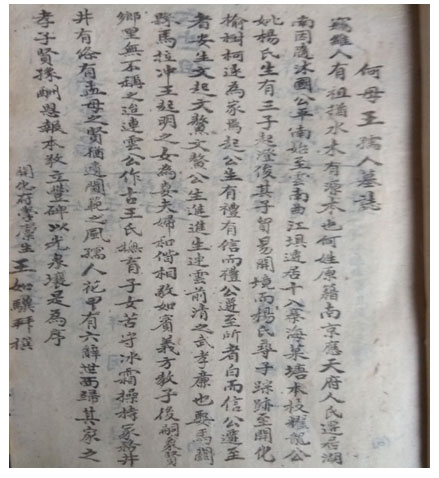 何母王孺人墓誌
窃維人有祖猶水木有源本也何姓原籍南京應天府人民遷居湖
南因隨沐國公平南始至雲南曲江垻遺居十入寨海菜塘本枝龍公
妣楊氏生有三子起澄後其子貿易開境而楊氏尋子踪跡至開化
榆樹柯遂為家焉起公生有禮有信而禮公遷至所者白而信公遷至
者安生文起文鰲文鰲公生進進生連雲前清之武孝廉也娶馬關
跺馬拉冲王起明之女為妻夫婦和偕相敬如賓義方教子後嗣象賢
鄉里無不稱之迨連雲公作古王氏撫育子女苦守冰霜操持家務井
井有條有孟母之賢猶遺閫範之風孺人花甲有六辭世西歸其家之
孝子賢孫酬恩報本敬立豐碑以光泉壤是為序
開化府學廩生王如驥拜撰